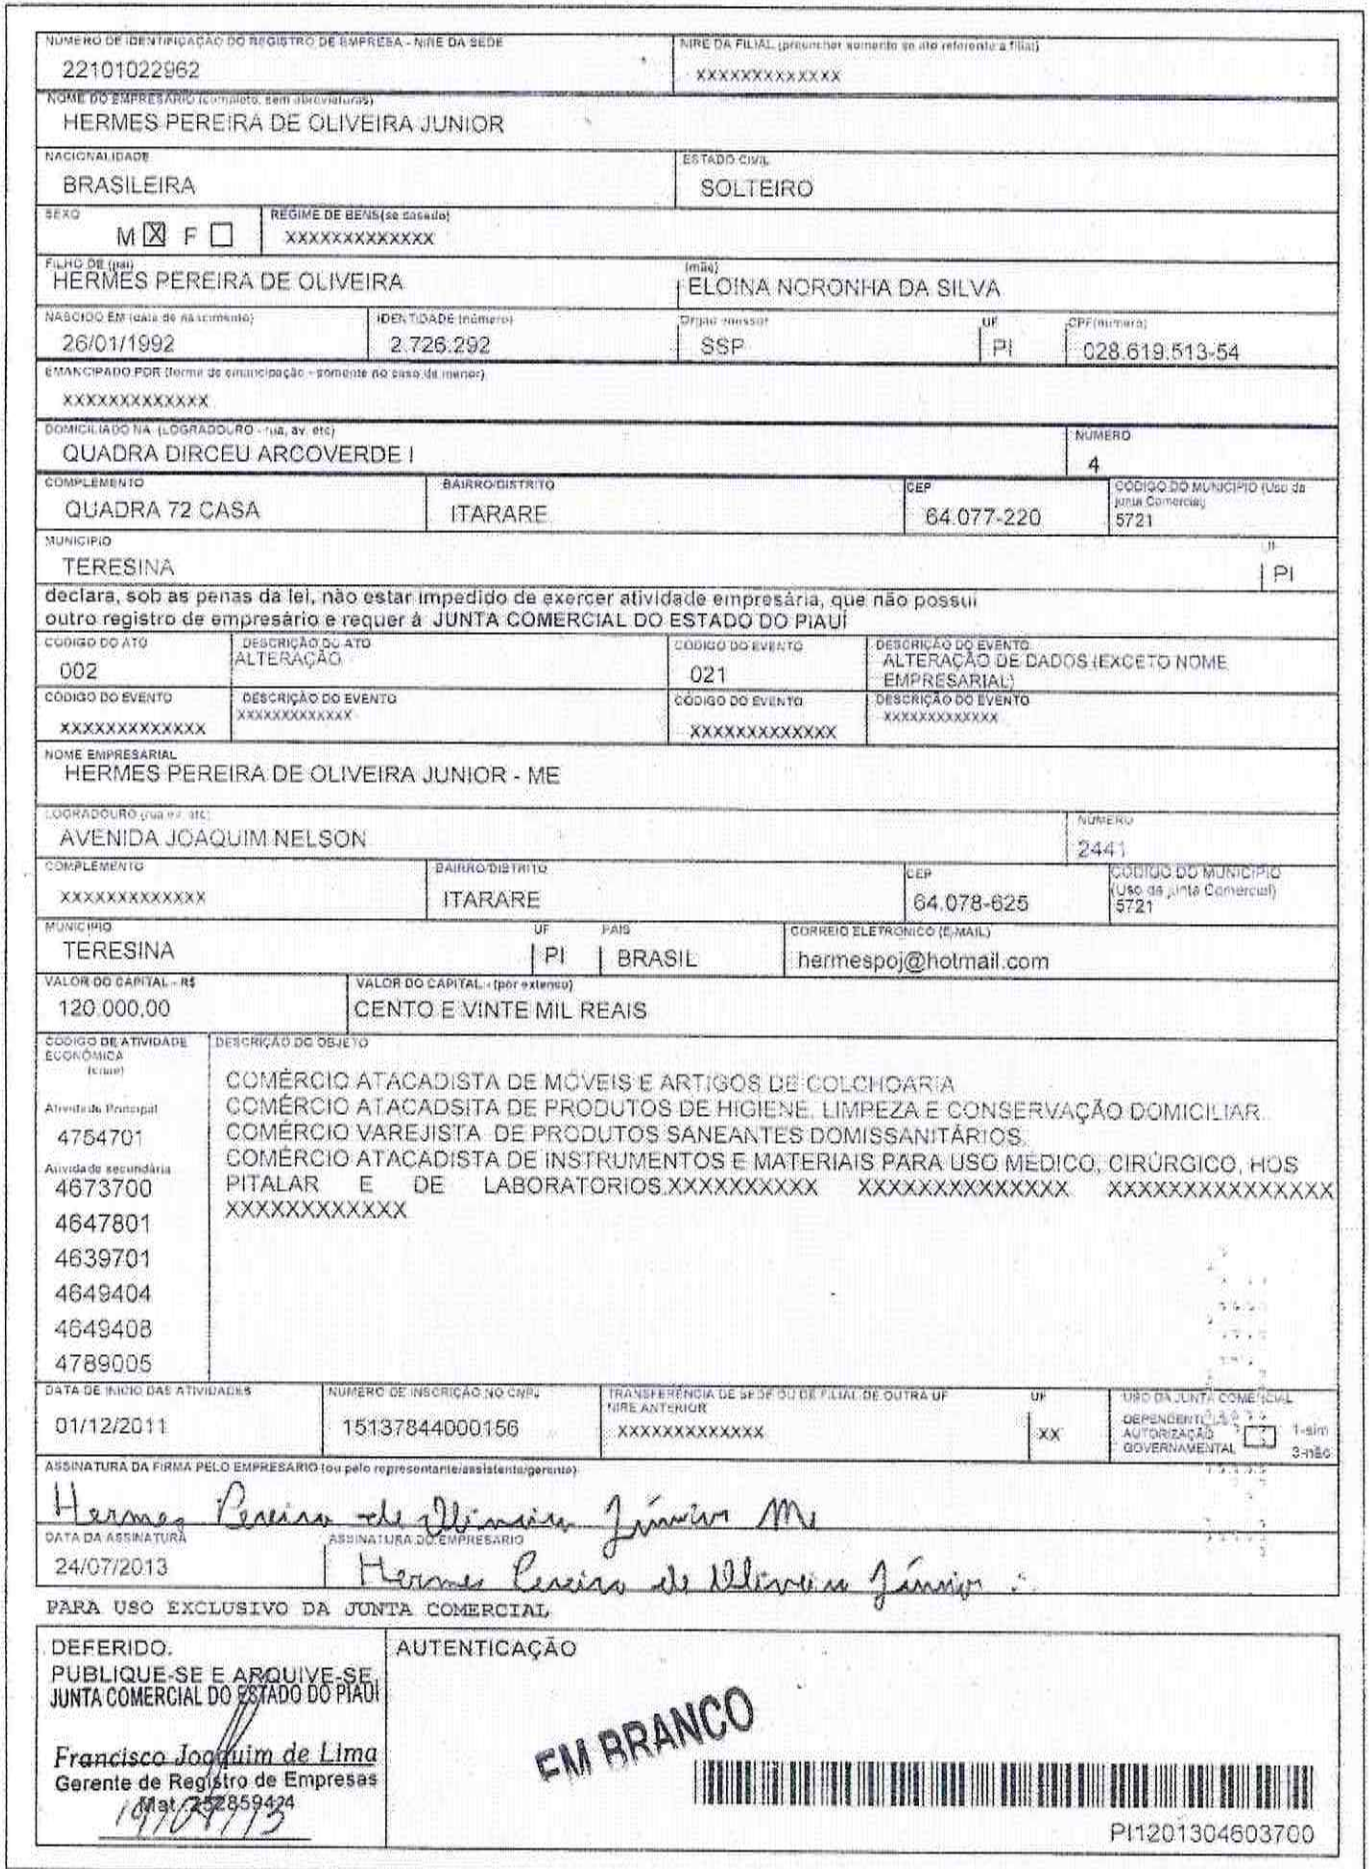 NÚMERO DE IDENTIFICAÇÃO DO REGISTRO DE EMPRESA - NIRE DA SEDE
22101022962
NIRE DA FILIAL (preencher somente se ato referente a filial)
XXXXXXXXXXXXX
NOME DO EMPRESÁRIO (completo, sem abreviaturas)
HERMES PEREIRA DE OLIVEIRA JUNIOR
NACIONALIDADE
BRASILEIRA
ESTADO CIVIL
SOLTEIRO
SEXO
M X F
REGIME DE BENS(se casado)
XXXXXXXXXXXXX
FILHO DE (pai)
HERMES PEREIRA DE OLIVEIRA
(mãe)
ELOINA NORONHA DA SILVA
NASCIDO EM (data de nascimento)
26/01/1992
IDENTIDADE (número)
2.726.292
Órgão emissor
SSP
UF
PI
CPF(número)
028.619.513-54
EMANCIPADO POR (forma de emancipação - somente no caso de menor)
XXXXXXXXXXXXX
DOMICILIADO NA (LOGRADOURO - rua, av, etc)
QUADRA DIRCEU ARCOVERDE I
NÚMERO
4
COMPLEMENTO
QUADRA 72 CASA
BAIRRO/DISTRITO
ITARARE
CEP
64.077-220
CÓDIGO DO MUNICIPIO (Uso da junta Comercial)
5721
MUNICIPIO
TERESINA
UF
PI
declara, sob as penas da lei, não estar impedido de exercer atividade empresária, que não possui
outro registro de empresário e requer à JUNTA COMERCIAL DO ESTADO DO PIAUÍ
CÓDIGO DO ATO
002
DESCRIÇÃO DO ATO
ALTERAÇÃO
CÓDIGO DO EVENTO
021
DESCRIÇÃO DO EVENTO
ALTERAÇÃO DE DADOS (EXCETO NOME
EMPRESARIAL)
CÓDIGO DO EVENTO
XXXXXXXXXXXXX
DESCRIÇÃO DO EVENTO
XXXXXXXXXXXXX
CÓDIGO DO EVENTO
XXXXXXXXXXXXX
DESCRIÇÃO DO EVENTO
XXXXXXXXXXXXX
NOME EMPRESARIAL
HERMES PEREIRA DE OLIVEIRA JUNIOR - ME
LOGRADOURO (rua av, etc)
AVENIDA JOAQUIM NELSON
NÚMERO
2441
COMPLEMENTO
XXXXXXXXXXXXX
BAIRRO/DISTRITO
ITARARE
CEP
64.078-625
CÓDIGO DO MUNICIPIO
(Uso da junta Comercial)
5721
MUNICIPIO
TERESINA
UF
PI
PAIS
BRASIL
CORREIO ELETRONICO (E-MAIL)
hermespoj@hotmail.com
VALOR DO CAPITAL - R$
120.000,00
VALOR DO CAPITAL - (por extenso)
CENTO E VINTE MIL REAIS
CÓDIGO DE ATIVIDADE
ECONÔMICA
(cnae)
DESCRIÇÃO DO OBJETO
Atividade Principal
4754701
Atividade secundária
4673700
4647801
4639701
4649404
4649408
4789005
COMÉRCIO ATACADISTA DE MÓVEIS E ARTIGOS DE COLCHOARIA
COMÉRCIO ATACADSITA DE PRODUTOS DE HIGIENE, LIMPEZA E CONSERVAÇÃO DOMICILIAR.
COMÉRCIO VAREJISTA DE PRODUTOS SANEANTES DOMISSANITÁRIOS.
COMÉRCIO ATACADISTA DE INSTRUMENTOS E MATERIAIS PARA USO MÉDICO, CIRÚRGICO, HOS
PITALAR E DE LABORATORIOS.XXXXXXXXXX XXXXXXXXXXXXXX XXXXXXXXXXXXXXX
XXXXXXXXXXXX
DATA DE INICIO DAS ATIVIDADES
01/12/2011
NÚMERO DE INSCRIÇÃO NO CNPJ
15137844000156
TRANSFERÊNCIA DE SEDE OU DE FILIAL DE OUTRA UF
NIRE ANTERIOR
XXXXXXXXXXXXX
UF
XX
USO DA JUNTA COMERCIAL
DEPENDENTE DE
AUTORIZAÇÃO
GOVERNAMENTAL
1-sim
3-não
ASSINATURA DA FIRMA PELO EMPRESÁRIO (ou pelo representante/assistente/gerente)
Hermes Pereira de Oliveira Júnior Me
DATA DA ASSINATURA
24/07/2013
ASSINATURA DO EMPRESÁRIO
Hermes Pereira de Oliveira Júnior
PARA USO EXCLUSIVO DA JUNTA COMERCIAL
DEFERIDO.
PUBLIQUE-SE E ARQUIVE-SE.
JUNTA COMERCIAL DO ESTADO DO PIAUÍ
Francisco Joaquim de Lima
Gerente de Registro de Empresas
Mat. 252859424
AUTENTICAÇÃO
EM BRANCO
PI1201304603700